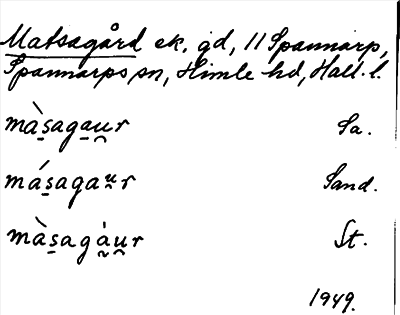 Matsagård ek. gd, 11 Spannarp,
Spannarps sn, Himle hd, Hall. l.
mà̱sa̱ga̱u̯r Sa.
má̱saga ̯ͧr Sand.
mà̱sagà̰u̯r St.
1949.